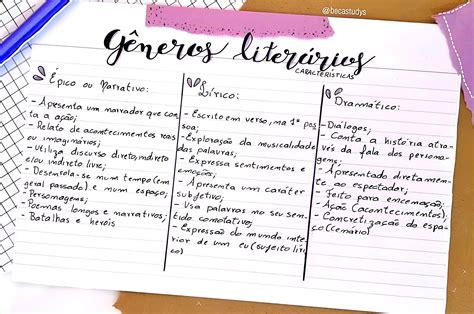 @becastudys
Gêneros literários
CARACTERÍSTICAS
Épico ou Narrativo:
- Apresenta um narrador que con
ta a ação;
- Relato de acontecimentos reais
ou imaginários;
- Utiliza discurso direto, indireto
e/ou indireto livre;
- Desenrola-se num tempo (em
geral passado) e num espaço;
- Personagens;
- Poemas longos e narrativos;
- Batalhas e heróis
Lírico:
- Escrito em verso, na 1ª pes
soa;
- Exploração da musicalidade
das palavras;
- Expressa sentimentos e
emoções;
- Apresenta um caráter
subjetivo;
- Usa palavras no seu sen
tido conotativo;
- Expressão do mundo inte
rior de um eu (sujeito líri
co)
Dramático:
- Diálogos;
- Conta a história atra
vés da fala dos persona
gens;
- Apresentado direta men
te ao espectador;
- Feito para encenação;
- Ação (acontecimentos);
- Concretização do espa
ço (cenário)